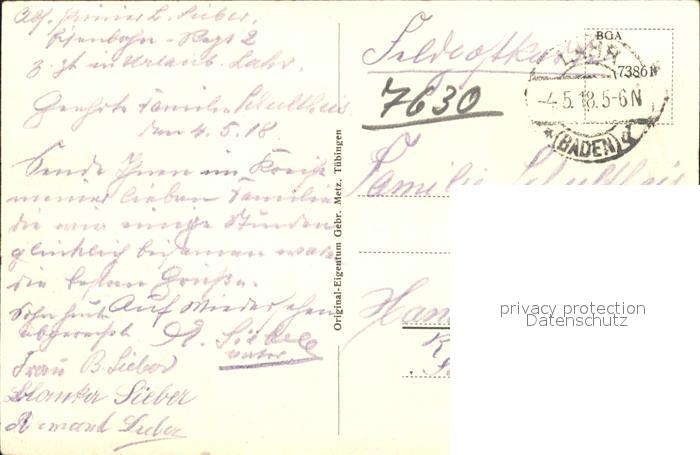 Abs. Pionier L. Sieber.
Eisenbahn-Regt 2
z. Zt in Urlaub. Lahr.
Geehrte Familie Schultheis
den 4.5.18.
Sende Ihnen im Kreise
meiner lieben Familie
die wir einige Stunden
glücklich beisamen waren
die besten Grüße.
Sohn heute Auf Wiedersehen
abgereist. A. Sieber
Vater.
Frau B. Sieber
Blanka Sieber
Sieber
Original-Eigentum Gebr. Metz, Tübingen
Feldpostkarte
7630
BGA
7386
LAHR
-4.5.18.5-6N
*(BADEN)
Familie Schultheis
Han
privacy protection
Datenschutz